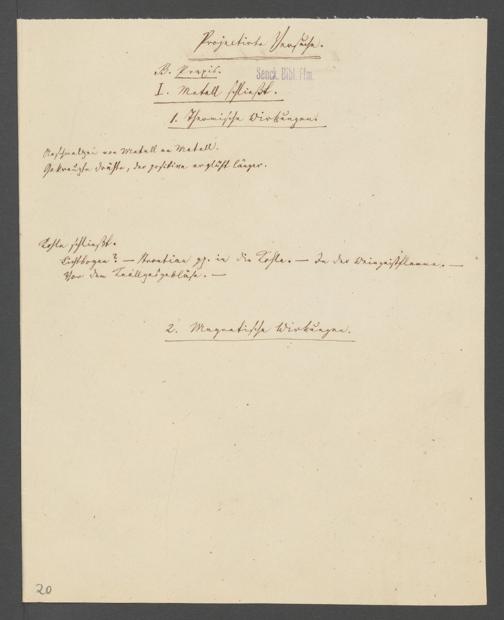 Projectirte Versuche.
B. Praxis.
Senck. Bibl. Ffm.
I. Metall schließt.
1. Thermische Wirkungen.
Abschmelzen von Metall an Metall.
Gekreuzte Drähte, der positive erglüht länger.
Kohle schließt.
Lichtbogen? — Strontian pp. in die Kohle. — In der Weingeistflamme. —
Vor dem Knallgasgebläse. —
2. Magnetische Wirkungen.
20